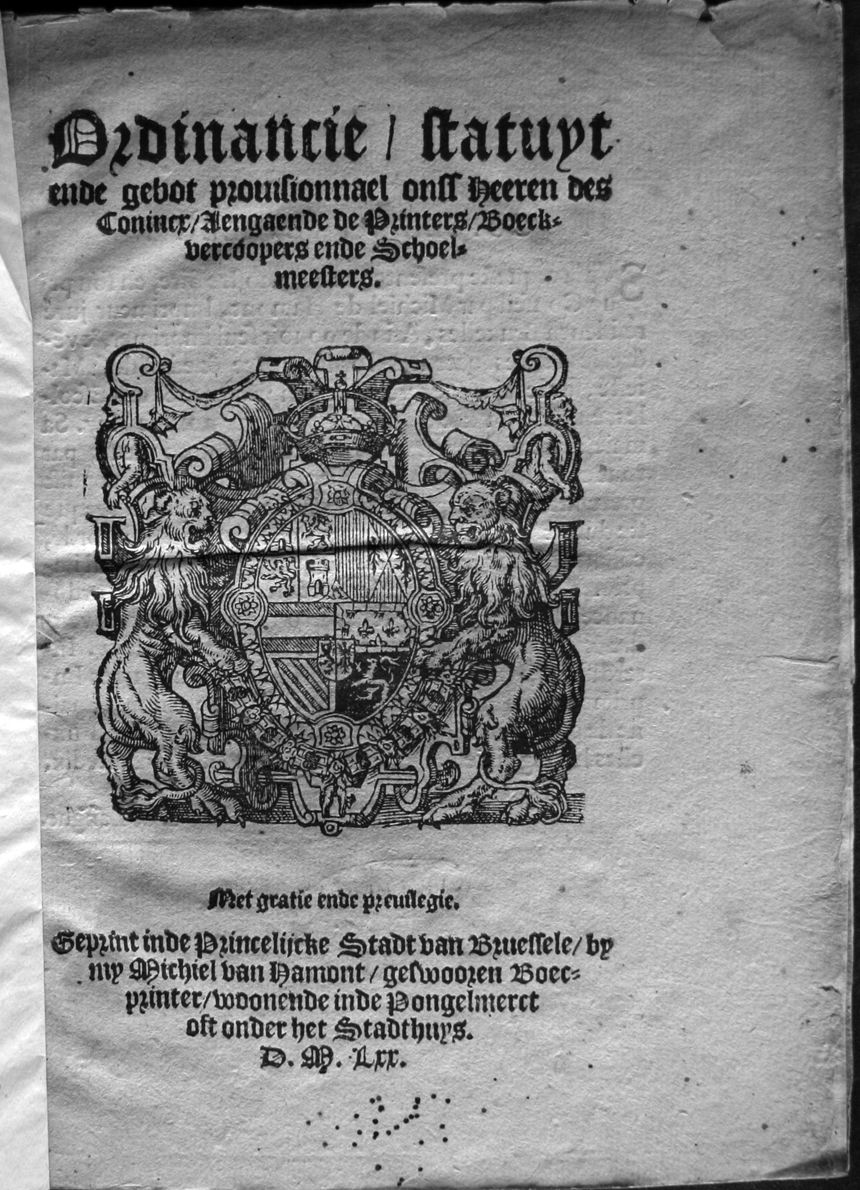 Ordinancie / statuyt
ende gebot prouisionnael onss Heeren des
Conincx / Aengaende de Printers / Boeck-
vercoopers ende Schoel-
meesters.
Met gratie ende preuilegie.
Geprint inde Princelijcke Stadt van Bruessele / by
my Michiel van Hamont / geswooren Boec-
printer / woonende inde Pongelmerct
oft onder het Stadthuys.
D. M. Lxx.